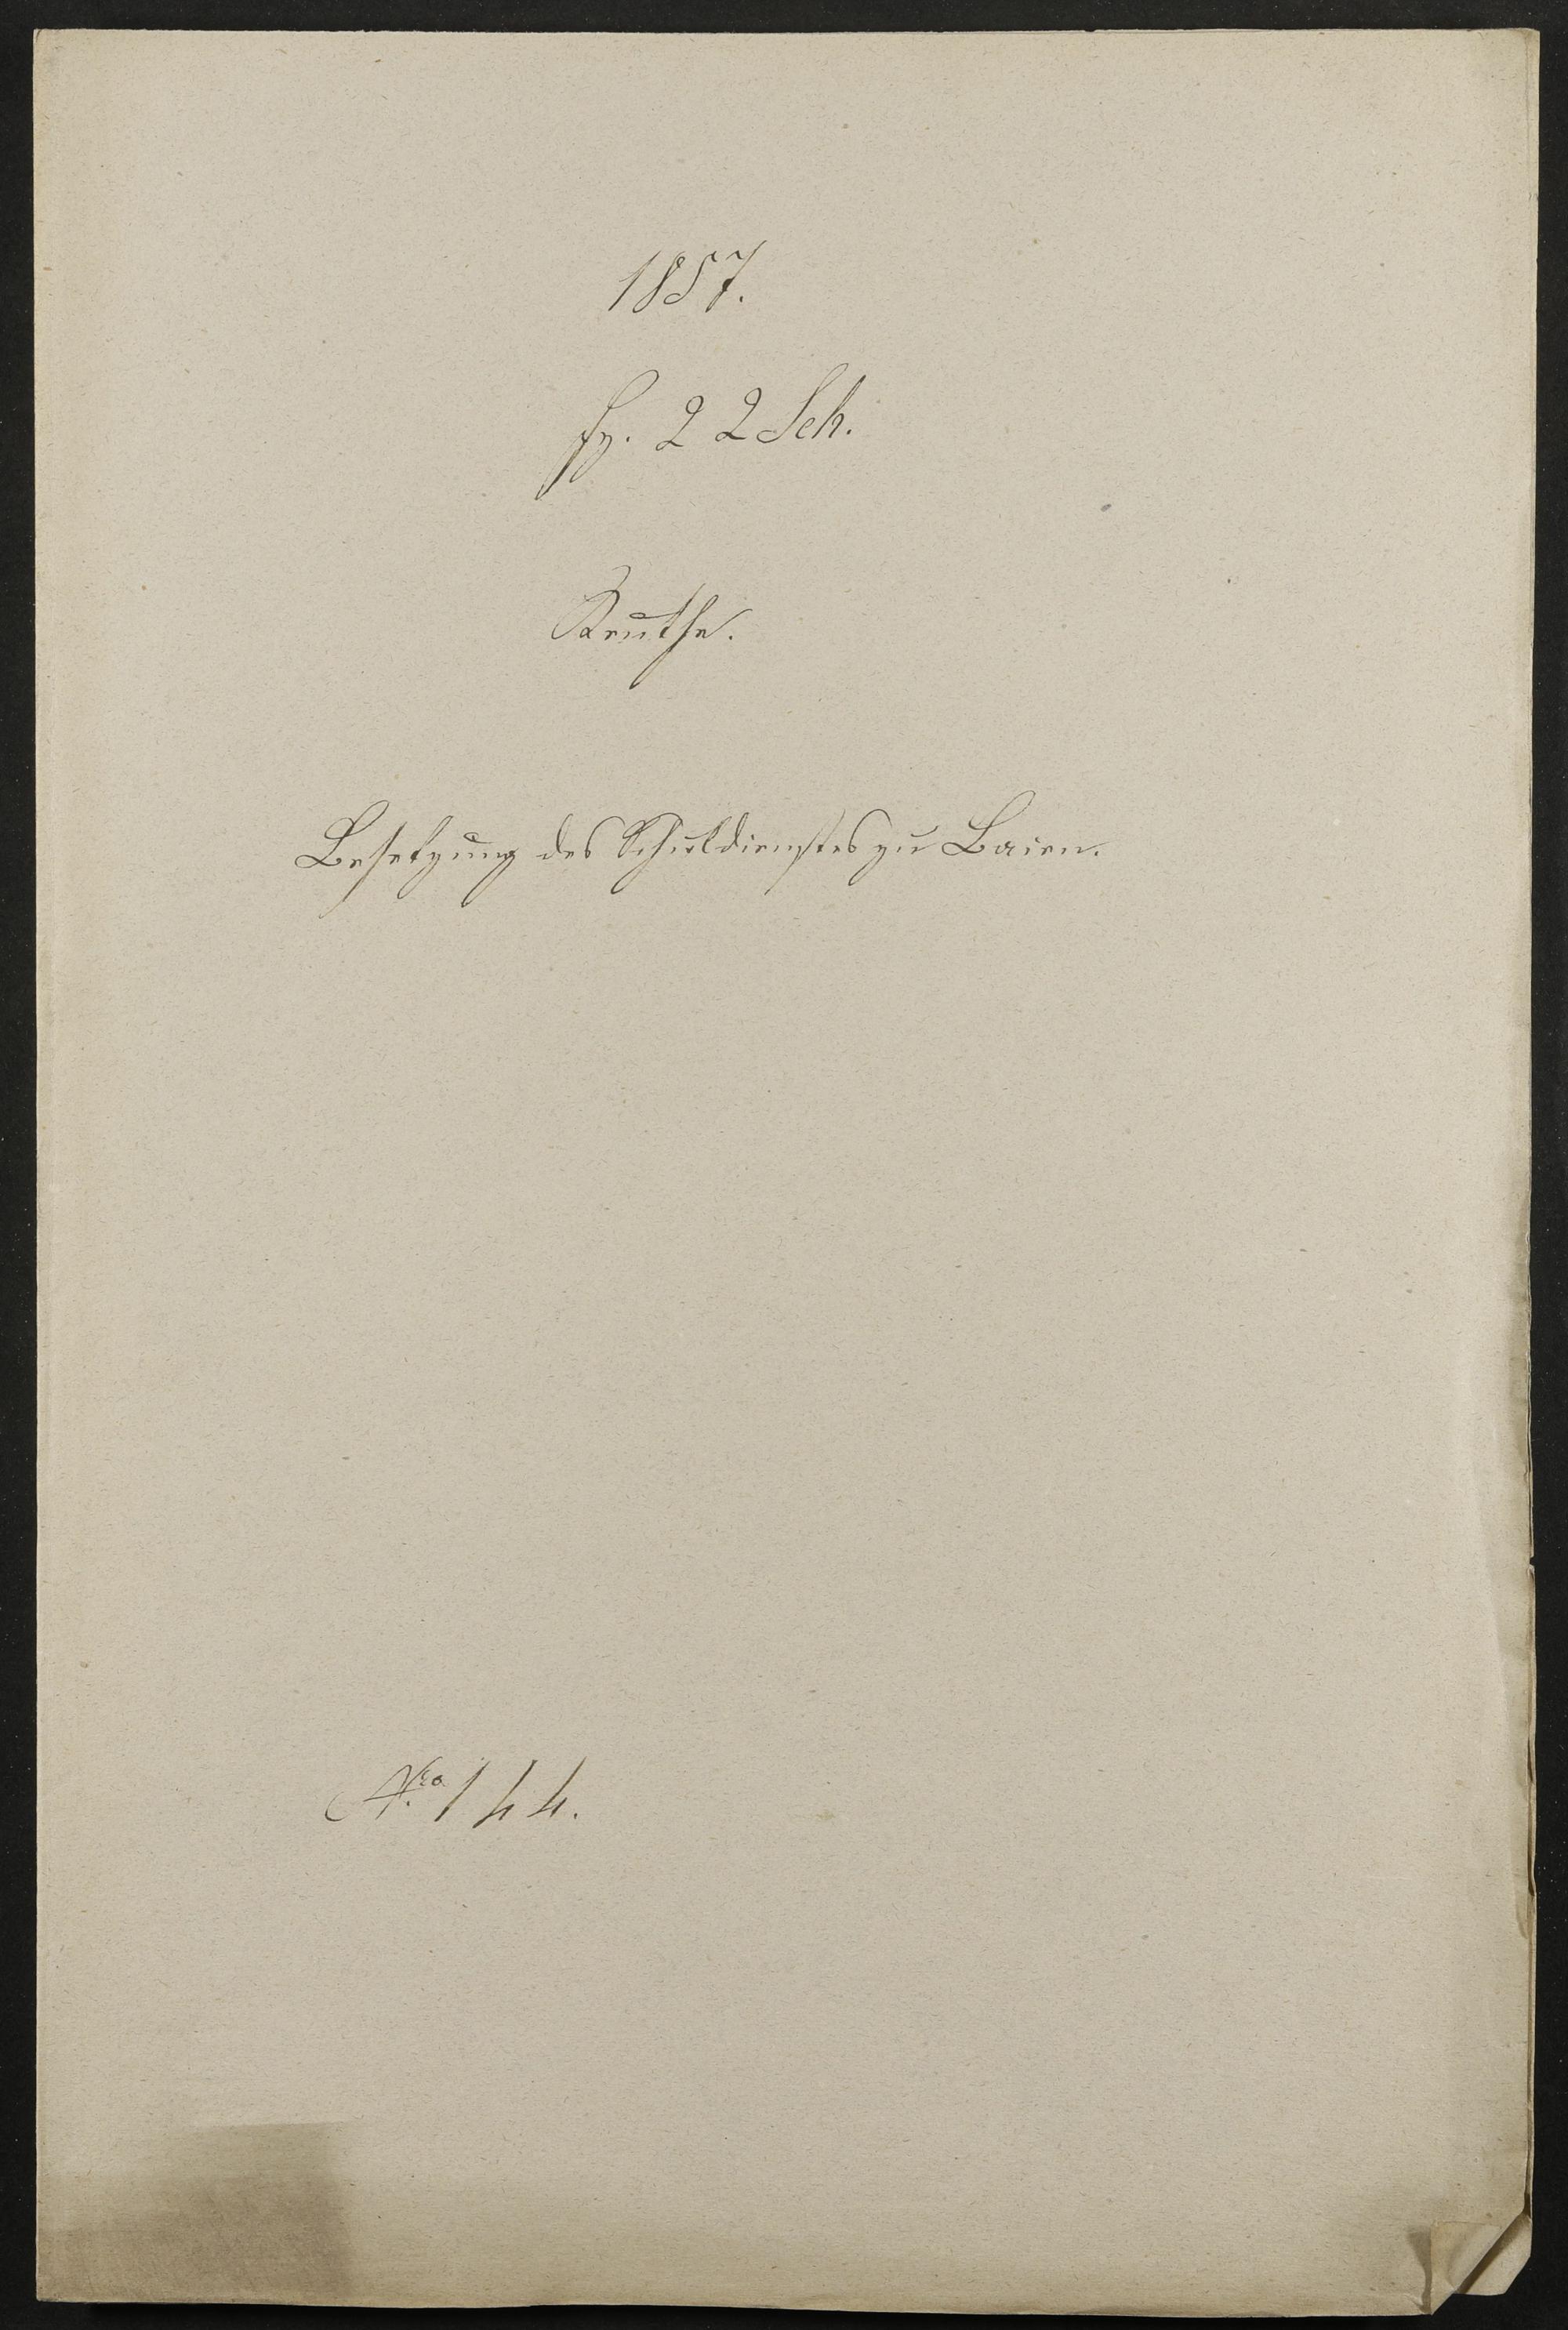 1857.
Fz. 2 2 Sch.
Reuthe.
Besetzung des Schuldienstes zu Baien.
Nro 144.